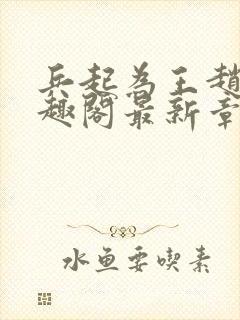 兵起为王趙
趣阁最新章
水鱼要喫素